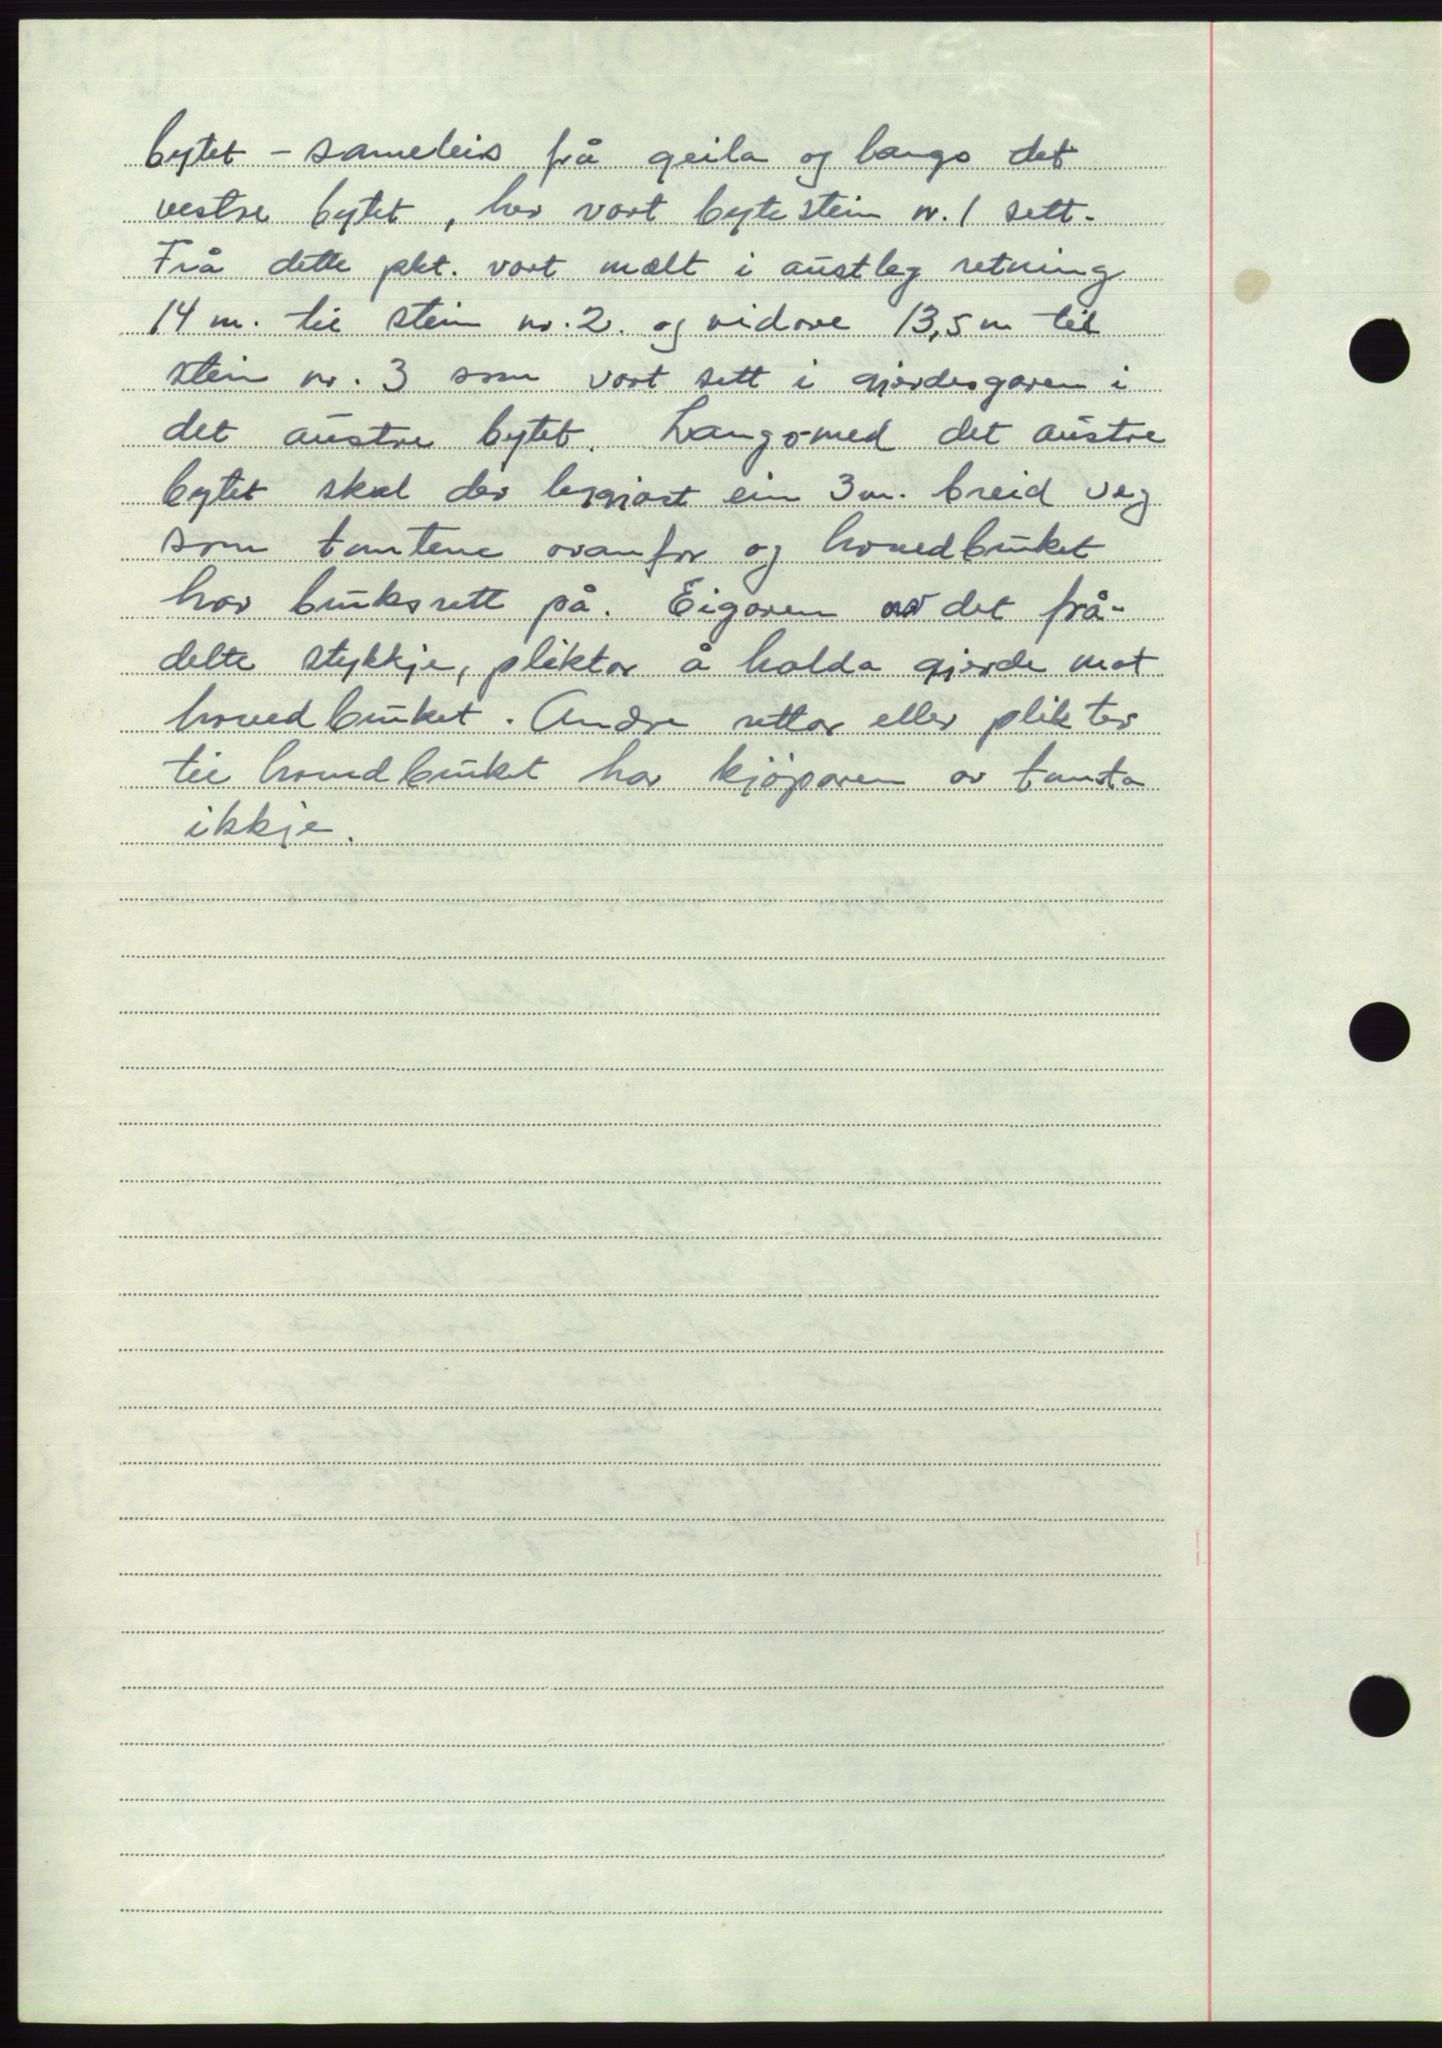 bytet – sameleis frå geila og langs det
vestre bytet, her vart bytestein nr. 1 sett.
Frå dette pkt. vart mælt i austleg retning
14 m. til stein nr. 2. og vidare 13,5 m til
stein nr. 3 som vart sett i gjerdesgaren i
det austre bytet. Langs-med det austre
bytet skal der leggjast ein 3 m. breid veg
som tomtene ovanfor og hovedbruket
har bruksrett på. Eigaren av det frå-
delte stykkje, pliktar å halda gjerde mot
hovedbruket. Andre rettar eller plikter
til hovedbruket har kjöparen av tomta
ikkje.